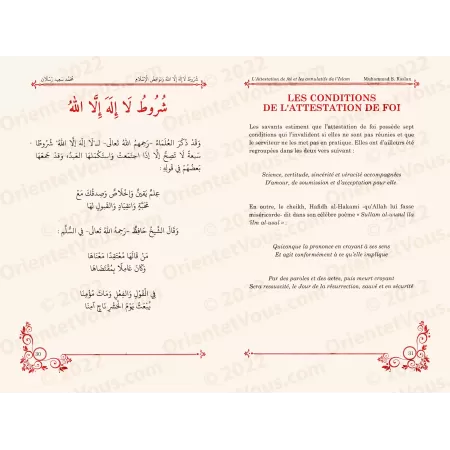 شُرُوطُ لَا إِلَهَ إِلَّا اللهُ وَنَوَاقِضُ الْإِسْلَامِ
مُحَمَّد سَعِيد رَسْلَان
شُرُوطُ لَا إِلَهَ إِلَّا اللهُ
وَقَدْ ذَكَرَ الْعُلَمَاءُ -رَحِمَهُمُ اللهُ تَعَالَى- لـ«لَا إِلَهَ إِلَّا اللهُ» شُرُوطًا
سَبْعَةً لَا تَصِحُّ إِلَّا إِذَا اجْتَمَعَتْ وَاسْتَكْمَلَهَا الْعَبْدُ، وَقَدْ جَمَعَهَا
بَعْضُهُمْ فِي قَوْلِهِ:
عِلْمٌ يَقِينٌ وَإِخْلَاصٌ وَصِدْقُكَ مَعْ
مَحَبَّةٍ وَانْقِيَادٍ وَالْقَبُولِ لَهَا
وَقَالَ الشَّيْخُ حَافِظٌ -رَحِمَهُ اللهُ تَعَالَى- فِي السُّلَّمِ:
مَنْ قَالَهَا مُعْتَقِدًا مَعْنَاهَا
وَكَانَ عَامِلًا بِمُقْتَضَاهَا
فِي الْقَوْلِ وَالْفِعْلِ وَمَاتَ مُؤْمِنَا
يُبْعَثُ يَوْمَ الْحَشْرِ نَاجٍ آمِنَا
30
L'Attestation de foi et les annulatifs de l'Islam
Muhammad S. Raslan
LES CONDITIONS
DE L'ATTESTATION DE FOI
Les savants estiment que l'attestation de foi possède sept
conditions qui l'invalident si elles ne sont pas réunies et que
le serviteur ne les met pas en pratique. Elles ont d'ailleurs été
regroupées dans les deux vers suivant :
Science, certitude, sincérité et véracité accompagnées
D'amour, de soumission et d'acceptation pour elle
En outre, le cheikh, Hafidh al-Hakami -qu'Allah lui fasse
miséricorde- dit dans son célèbre poème « Sullam al-usoul ila
'ilm al-usul » :
Quiconque la prononce en croyant à ses sens
Et agit conformément à ce qu'elle implique
Par des paroles et des actes, puis meurt croyant
Sera ressuscité, le Jour de la résurrection, sauvé et en sécurité
31
OrientetVous.com © 2022